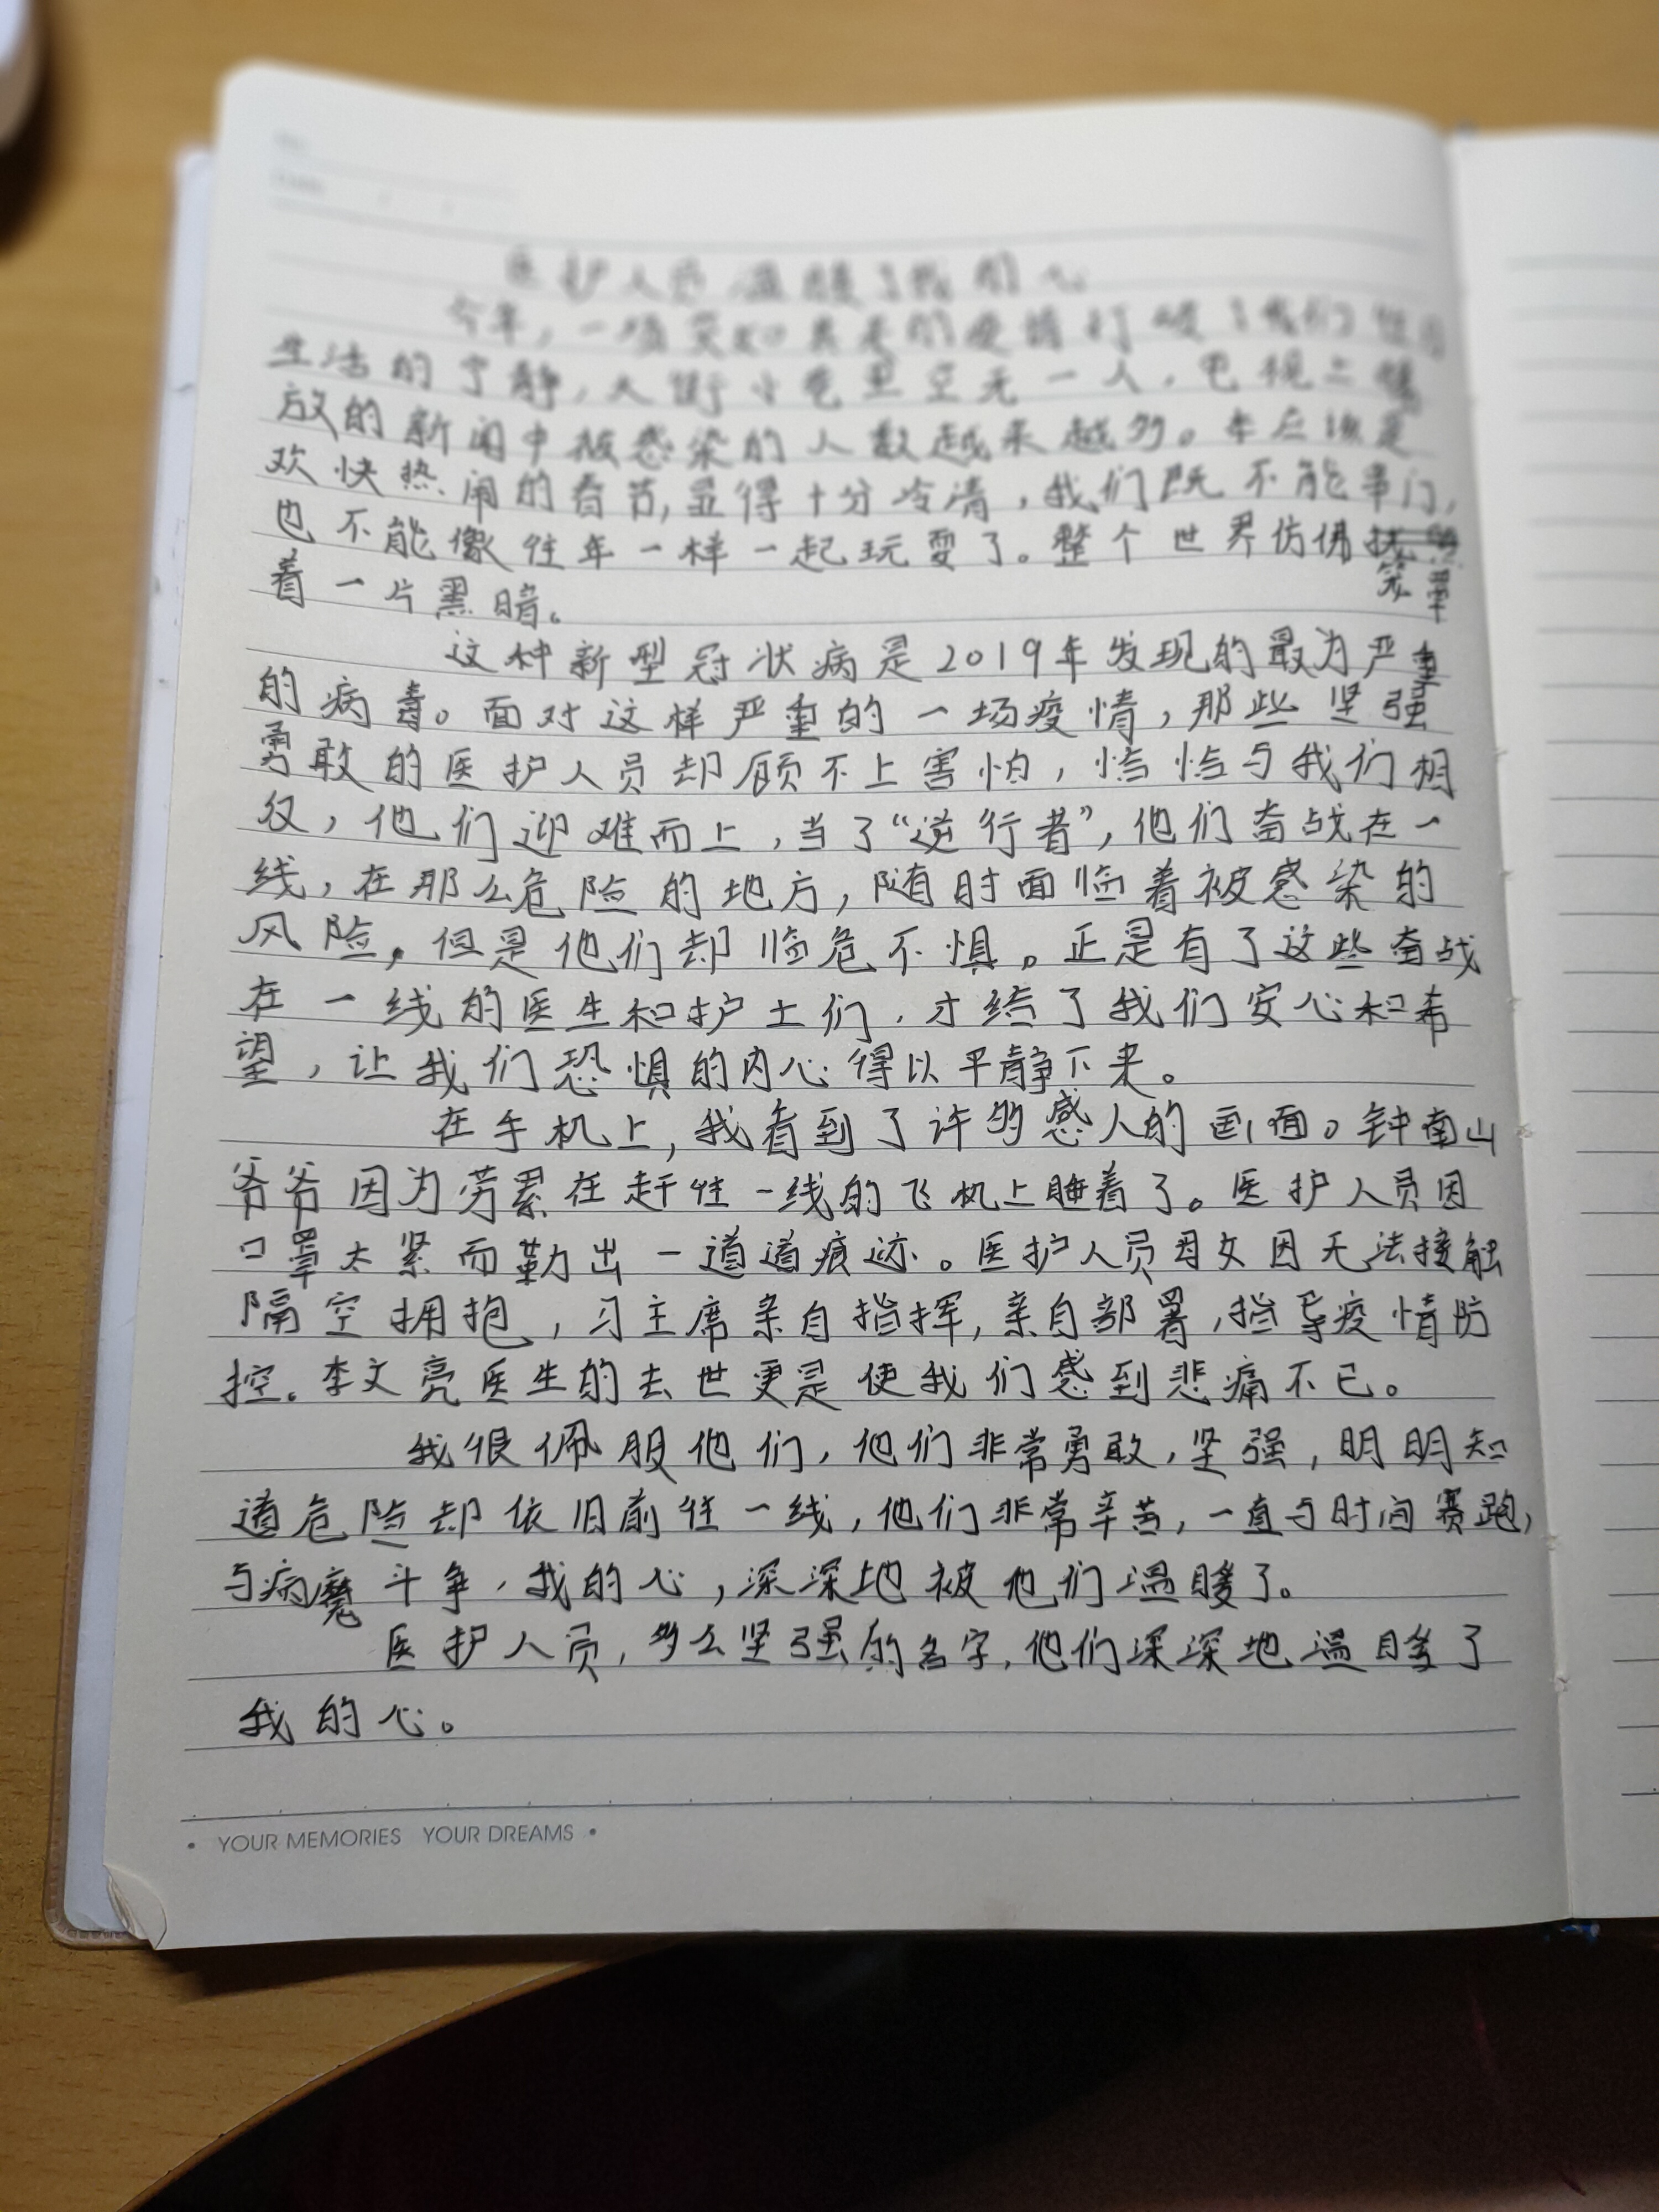 医护人员温暖了我的心
今年,一场突如其来的疫情打破了我们
生活的宁静,大街小巷里空无一人,电视上播
放的新闻中被感染的人数越来越多。本应该是
欢快热闹的春节,显得十分冷清,我们既不能串门,
也不能像往年一样一起玩耍了。整个世界仿佛笼罩
着一片黑暗。
这种新型冠状病是2019年发现的最为严重
的病毒。面对这样严重的一场疫情,那些坚强
勇敢的医护人员却顾不上害怕,恰恰与我们相
反,他们迎难而上,当了“逆行者”,他们奋战在一
线,在那么危险的地方,随时面临着被感染的
风险,但是他们却临危不惧。正是有了这些奋战
在一线的医生和护士们,才给了我们安心和希
望,让我们恐惧的内心得以平静下来。
在手机上,我看到了许多感人的画面。钟南山
爷爷因为劳累在赶往一线的飞机上睡着了。医护人员因
口罩太紧而勒出一道道痕迹。医护人员母女因无法接触
隔空拥抱,习主席亲自指挥,亲自部署,指导疫情防
控。李文亮医生的去世更是使我们感到悲痛不已。
我很佩服他们,他们非常勇敢,坚强,明明知
道危险却依旧前往一线,他们非常辛苦,一直与时间赛跑,
与病魔斗争,我的心,深深地被他们温暖了。
医护人员,多么坚强的名字,他们深深地温暖了
我的心。
• YOUR MEMORIES YOUR DREAMS •